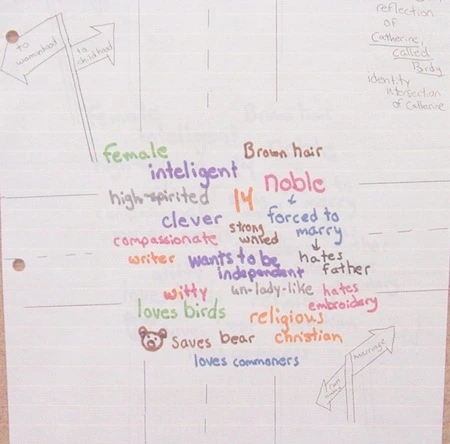 reflection
of
Catherine,
called
Birdy
identity
intersection
of Catharine
to womanhood
to childhood
female
Brown hair
inteligent
noble
high-spirited
14
clever
strong
willed
forced to
marry
compassionate
hates
father
writer
wants to be
independent
witty
un-lady-like
hates
embroidery
loves birds
religious
saves bear
christian
loves commoners
run
away
marriage